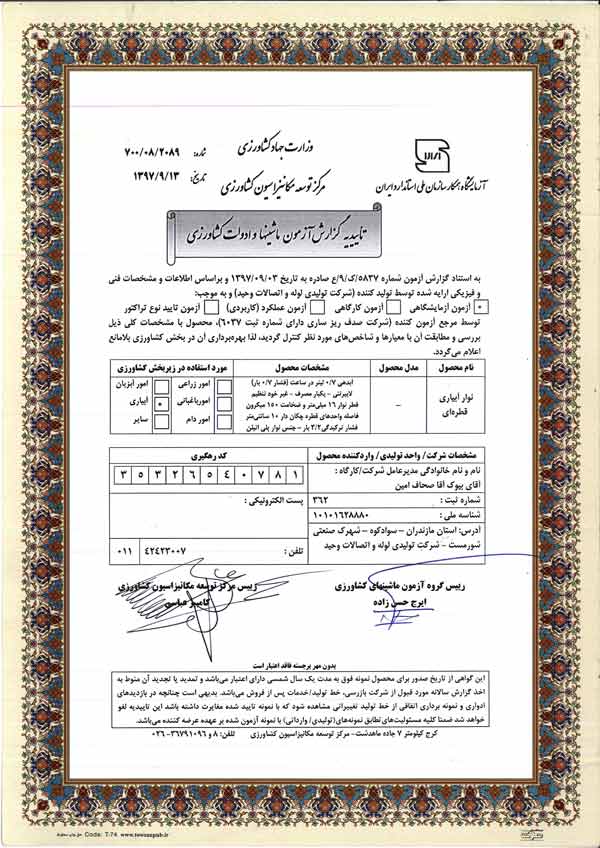 وزارت جهاد کشاورزی
شماره: ۷۰۰/۰۸/۲۰۸۹
مرکز توسعه مکانیزاسیون کشاورزی
تاریخ: ۱۳۹۷/۹/۱۳
آزمایشگاه همکار سازمان ملی استاندارد ایران
تاییدیه گزارش آزمون ماشینها و ادوات کشاورزی
به استناد گزارش آزمون شماره ۵۸۳۷/ک/۹/ع صادره به تاریخ ۱۳۹۷/۰۹/۰۳ و براساس اطلاعات و مشخصات فنی
و فیزیکی ارایه شده توسط تولید کننده (شرکت تولیدی لوله و اتصالات وحید) و به موجب:
آزمون آزمایشگاهی آزمون کارگاهی آزمون عملکرد (کاربردی) آزمون تایید نوع تراکتور
توسط مرجع آزمون کننده (شرکت صدف ریز سازی دارای شماره ثبت ۶۰۳۷)، محصول با مشخصات کلی ذیل
بررسی و مطابقت آن با معیارها و شاخص‌های مورد نظر کنترل گردید، لذا بهره‌برداری آن در بخش کشاورزی بلامانع
اعلام می‌گردد.
نام محصول مدل محصول مشخصات محصول مورد استفاده در زیربخش کشاورزی
نوار آبیاری قطره‌ای
–
آبدهی ۰/۷ لیتر در ساعت (فشار ۰/۷ بار)
لابیرنتی - یکبار مصرف - غیر خود تنظیم
قطر نوار ۱۶ میلی‌متر و ضخامت ۱۵۰ میکرون
فاصله واحدهای قطره چکان دار ۱۰ سانتی‌متر
فشار ترکیدگی ۲/۲ بار - جنس نوار پلی اتیلن
امور زراعی امور آبزیان
امور باغبانی آبیاری
امور دام سایر
مشخصات شرکت/ واحد تولیدی/ واردکننده محصول
کد رهگیری
نام و نام خانوادگی مدیرعامل شرکت/کارگاه:
آقای بیوک آقا صحاف امین
۳۵۳۲۶۵۴۰۷۸۱
شماره ثبت: ۳۶۲
پست الکترونیکی:
شناسه ملی: ۱۰۱۰۱۶۲۸۸۸۰
آدرس: استان مازندران – سوادکوه – شهرک صنعتی
شورمست – شرکت تولیدی لوله و اتصالات وحید
تلفن: ۴۲۴۲۳۰۰۷ ۰۱۱
رییس گروه آزمون ماشینهای کشاورزی
ایرج حسن زاده
رییس مرکز توسعه مکانیزاسیون کشاورزی
کامبیز عباسی
بدون مهر برجسته فاقد اعتبار است
این گواهی از تاریخ صدور برای محصول نمونه فوق به مدت یک سال شمسی دارای اعتبار می‌باشد و تمدید یا تجدید آن منوط به
اخذ گزارش سالانه مورد قبول از شرکت بازرسی، خط تولید/خدمات پس از فروش می‌باشد. بدیهی است چنانچه در بازدیدهای
ادواری و نمونه برداری اتفاقی از خط تولید تغییراتی مشاهده شود که با نمونه تایید شده مغایرت داشته باشد این تاییدیه لغو
خواهد شد ضمنا کلیه مسئولیت‌های تطابق نمونه‌های (تولیدی/ وارداتی) با نمونه آزمون شده بر عهده عرضه کننده می‌باشد.
کرج کیلومتر ۷ جاده ماهدشت - مرکز توسعه مکانیزاسیون کشاورزی تلفن: ۸ و ۳۶۷۹۱۰۹۶-۰۲۶
Code: T-74 www.tawoospub.ir